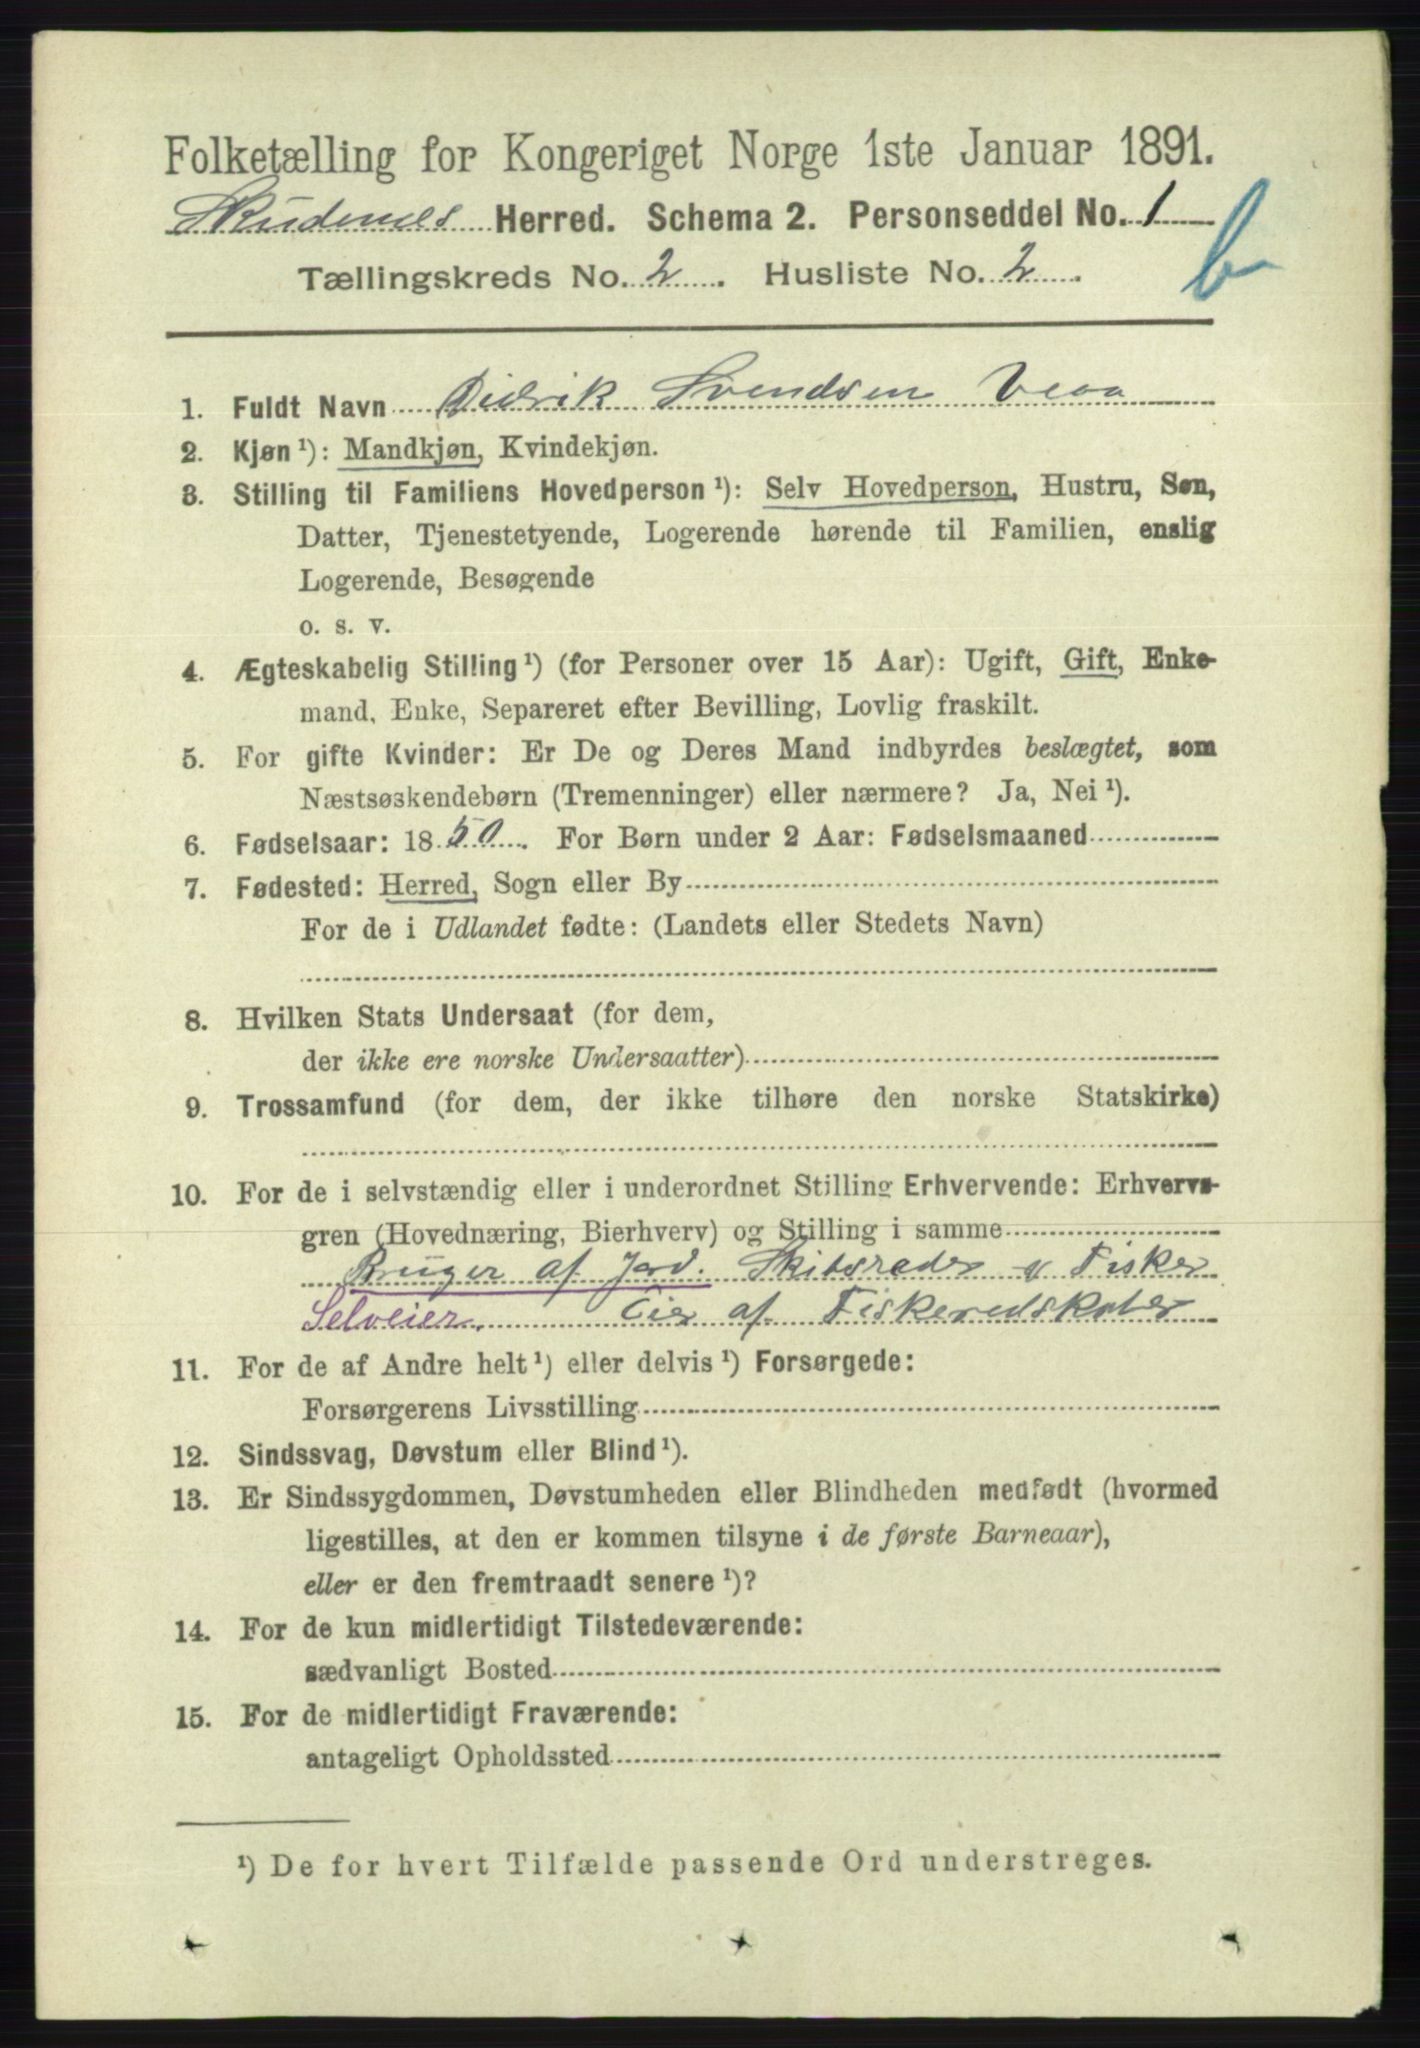 Folketælling for Kongeriget Norge 1ste Januar 1891.
Skudenes Herred. Schema 2. Personseddel No. 1
b
Tællingskreds No. 2. Husliste No. 2.
1. Fuldt Navn Didrik Svendsen Veaa
2. Kjøn ¹): Mandkjøn, Kvindekjøn.
3. Stilling til Familiens Hovedperson ¹): Selv Hovedperson, Hustru, Søn,
Datter, Tjenestetyende, Logerende hørende til Familien, enslig
Logerende, Besøgende
o. s. v.
4. Ægteskabelig Stilling ¹) (for Personer over 15 Aar): Ugift, Gift, Enke-
mand, Enke, Separeret efter Bevilling, Lovlig fraskilt.
5. For gifte Kvinder: Er De og Deres Mand indbyrdes beslægtet, som
Næstsøskendebørn (Tremenninger) eller nærmere? Ja, Nei ¹).
6. Fødselsaar: 1850. For Børn under 2 Aar: Fødselsmaaned
7. Fødested: Herred, Sogn eller By
For de i Udlandet fødte: (Landets eller Stedets Navn)
8. Hvilken Stats Undersaat (for dem,
der ikke ere norske Undersaatter)
9. Trossamfund (for dem, der ikke tilhøre den norske Statskirke)
10. For de i selvstændig eller i underordnet Stilling Erhvervende: Erhvervs-
gren (Hovednæring, Bierhverv) og Stilling i samme
Bruger af Jord. Skibsreder & Fisker
Selveier. Eier af Fiskeredskaber
11. For de af Andre helt ¹) eller delvis ¹) Forsørgede:
Forsørgerens Livsstilling
12. Sindssvag, Døvstum eller Blind ¹).
13. Er Sindssygdommen, Døvstumheden eller Blindheden medfødt (hvormed
ligestilles, at den er kommen tilsyne i de første Barneaar),
eller er den fremtraadt senere ¹)?
14. For de kun midlertidigt Tilstedeværende:
sædvanligt Bosted
15. For de midlertidigt Fraværende:
antageligt Opholdssted
¹) De for hvert Tilfælde passende Ord understreges.